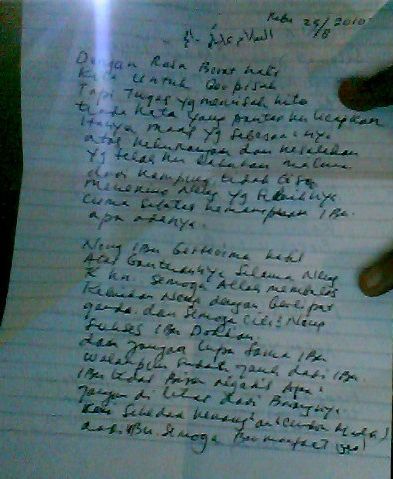 Rabu 25/8 2010
السلام عليكم
Dengan Rasa Berat hati
Kita untuk Berpisah
Tapi Tugas yg memisah kita
tiada kata yang pantas ku ucapkan
Hanya maaf yg sebesar2nya
atas kekurangan dan kesalahan
yg telah ku lakukan
dari kampung tidak bisa
Neng yg sebaiknya
Cuma sebatas kemampuan IBu
apa adanya.
Neng IBu berterima kasih
Atas bantuannya selama Neng
KKN. Semoga Allah membalas
Kebaikan Neng dengan berlipat
ganda. dan semoga cita2 Neng
Sukses IBu Doakan
dan jangan lupa sama IBu
walaupun sudah jauh dari IBu.
IBu tidak Bisa ngasih Apa2
jangan di lihat dari Barangnya
Ken Sekedar kenang2an
dari IBu. Semoga Bermanfaat